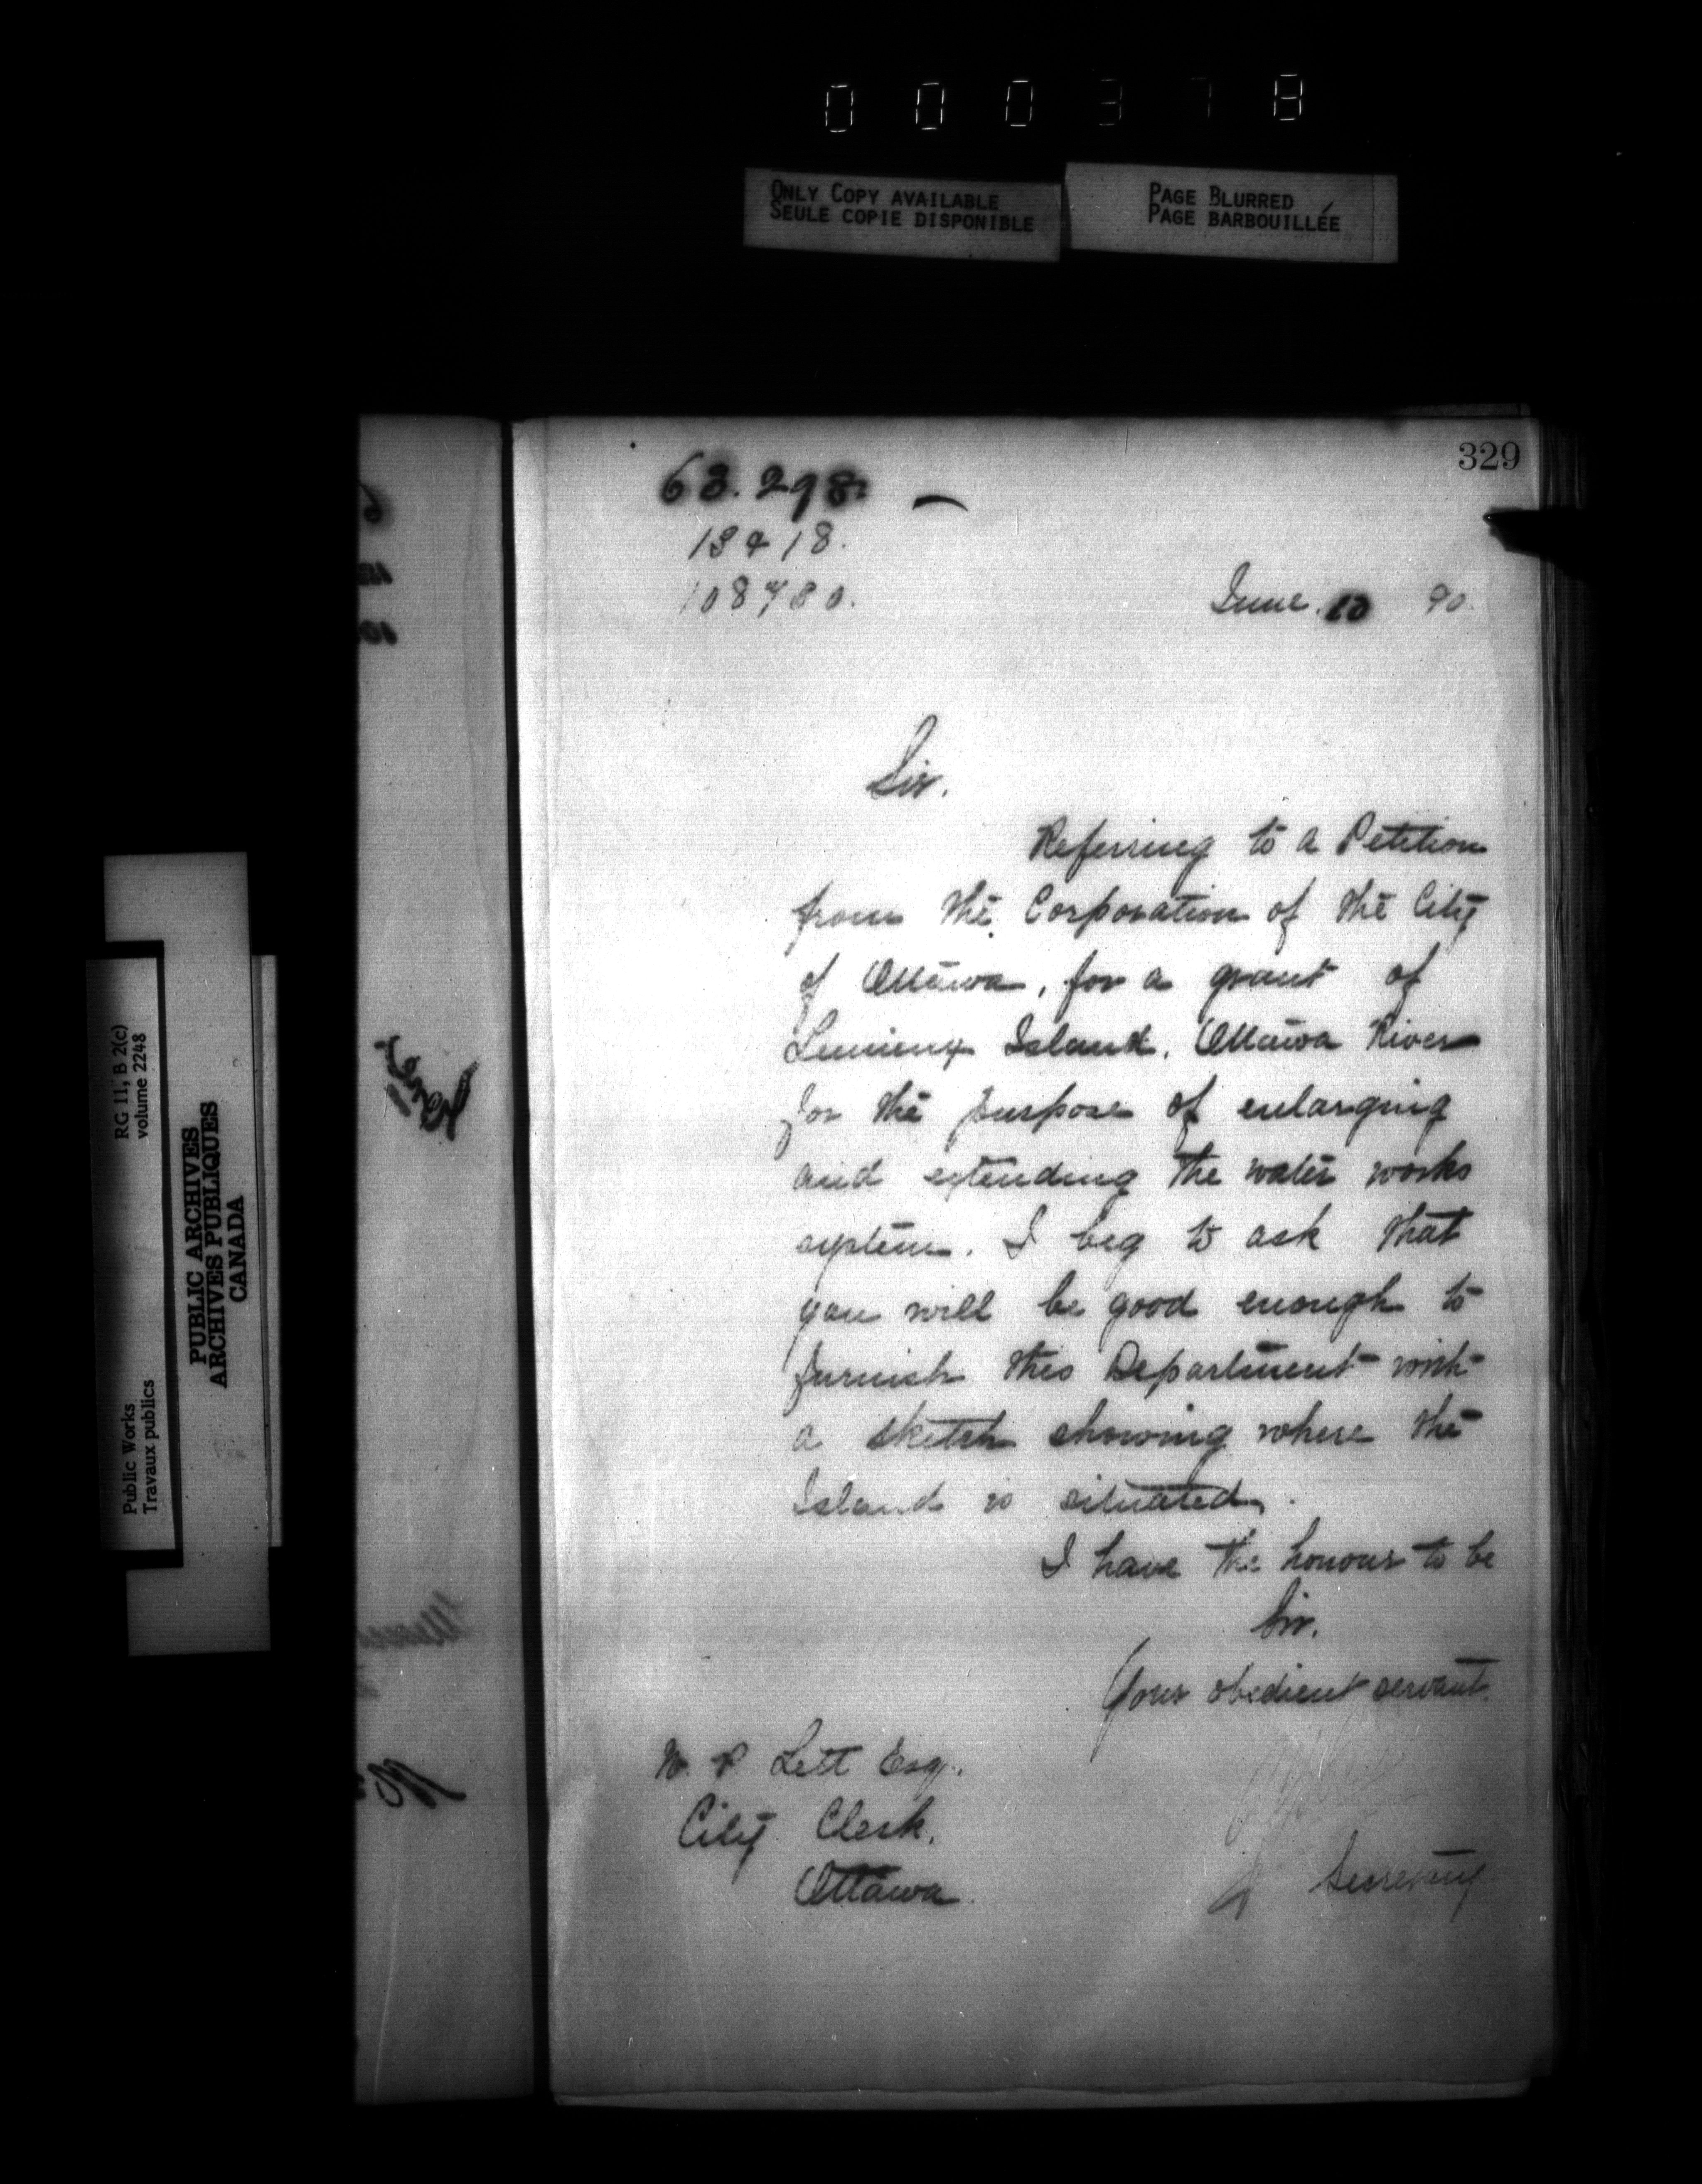 ONLY COPY AVAILABLE
SEULE COPIE DISPONIBLE
PAGE BLURRED
PAGE BARBOUILLÉE
329
63.298
108480.
June. 10 90.
Sir.
Referring to a Petition
from the Corporation of the City
of Ottawa, for a grant of
Lemieux Island, Ottawa River
for the purpose of enlarging
and extending the water works
system. I beg to ask that
you will be good enough to
furnish this Department with
a sketch showing where the
Island is situated.
I have the honour to be
Sir.
Your obedient servant.
Secretary
W. P Lett Esq.
City Clerk.
Ottawa
RG 11, B 2(c)
volume 2248
Public Works
Travaux publics
PUBLIC ARCHIVES
ARCHIVES PUBLIQUES
CANADA